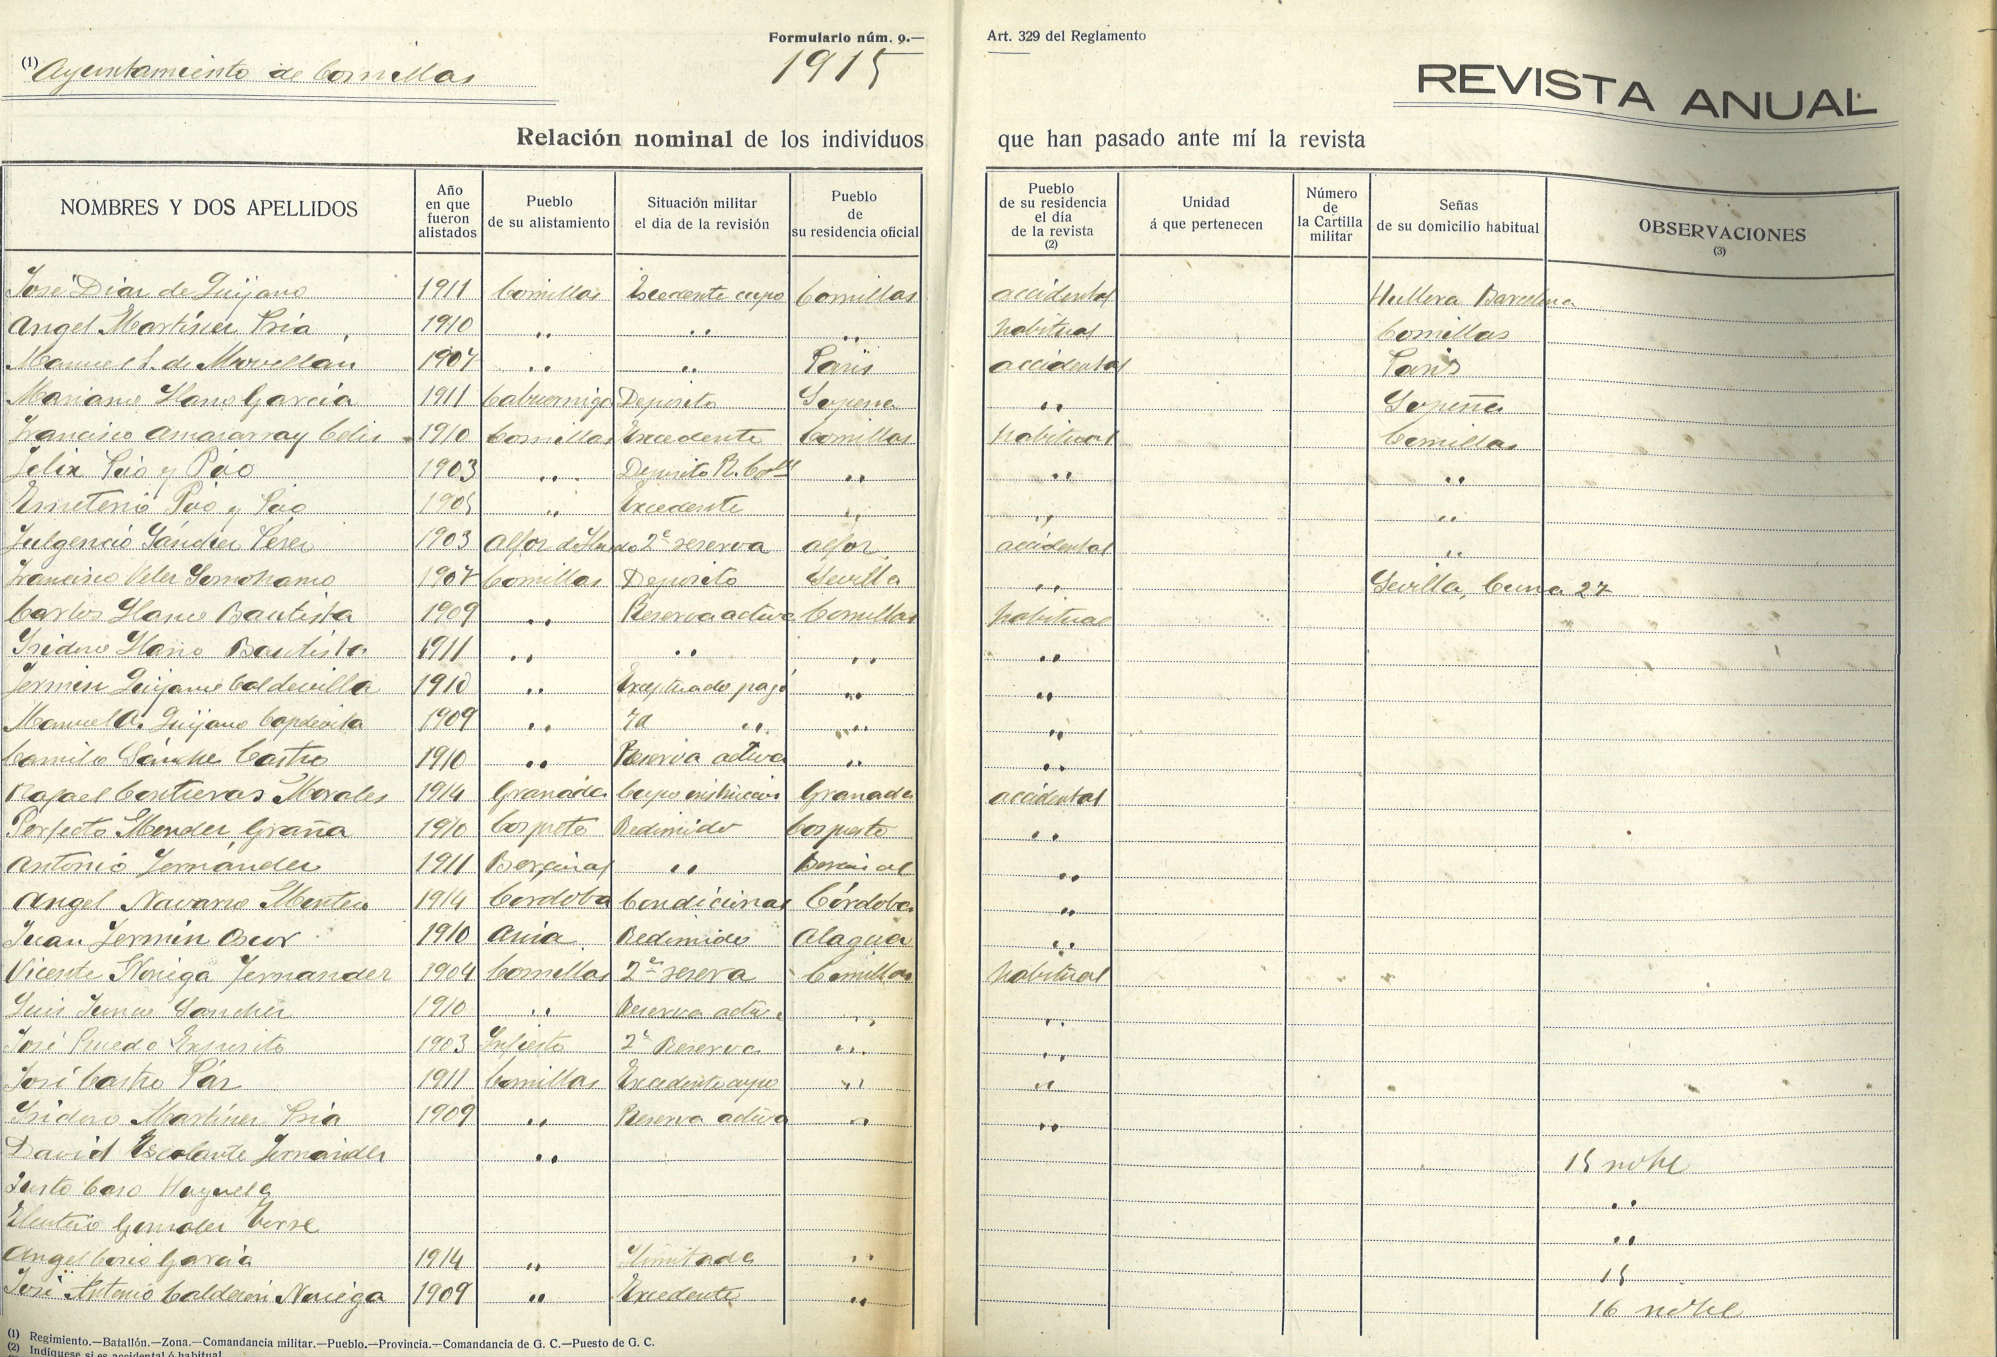 Formulario núm. 9.— Art. 329 del Reglamento
(1) Ayuntamiento de Comillas 1915
REVISTA ANUAL
Relación nominal de los individuos que han pasado ante mí la revista
NOMBRES Y DOS APELLIDOS Año en que fueron alistados Pueblo de su alistamiento Situación militar el dia de la revisión Pueblo de su residencia oficial Pueblo de su residencia el día de la revista (2) Unidad á que pertenecen Número de la Cartilla militar Señas de su domicilio habitual OBSERVACIONES (3)
José Diaz de Quijano 1911 Comillas Excedente cupo Comillas accidental Hullera Barcelona
Angel Martínez Pria 1910 " " " habitual Comillas
Manuel S. de Movellan 1907 " " Paris accidental Paris
Mariano Llano Garcia 1911 Cabuerniga Deposito Sopeña " Sopeña
Francisco Amasarray Celis 1910 Comillas Excedente Comillas habitual Comillas
Felix 1903 " Deposito R. " " "
Emeterio 1905 " Excedente " " "
Fulgencio Sánchez Pérez 1903 Alfoz de 2ª reserva Alfoz accidental "
Francisco Velez 1907 Comillas Deposito Sevilla " Sevilla, Cuna 27
Carlos Llano Bautista 1909 " Reserva activa Comillas habitual
Isidoro Llano Bautista 1911 " " " "
Fermin Quijano Caldevilla 1910 " Exceptuado pagó " "
Manuel A. Quijano Capdevila 1909 " Id " " "
Camilo Sánchez Castro 1910 " Reserva activa " "
Rafael Contreras Morales 1914 Granada Cupo instrucción Granada accidental
Perfecto Mendez Graña 1910 Cospeito Redimido Cospeito "
Antonio Fernández 1911 " "
Angel Navarro Montero 1914 Cordoba Condicional Córdoba "
Juan Fermin 1910 Redimido "
Vicente Noriega Fernandez 1904 Comillas 2ª reserva Comillas habitual
Luis Sanchez 1910 " Reserva activa " "
José Rueda Exposito 1903 Infiesto 2ª Reserva " "
José Castro Páz 1911 Comillas Excedente cupo " "
Isidoro Martínez Pria 1909 " Reserva activa " "
David Escalante Fernández " 15 nobre
Justo Caso "
Eleuterio Gonzalez "
Angel Cosio Garcia 1914 " Ilimitada " 15
José Antonio Calderón Noriega 1909 " Excedente " 16 nobre
(1) Regimiento.—Batallón.—Zona.—Comandancia militar.—Pueblo.—Provincia.—Comandancia de G. C.—Puesto de G. C.
(2) Indíquese si es accidental ó habitual